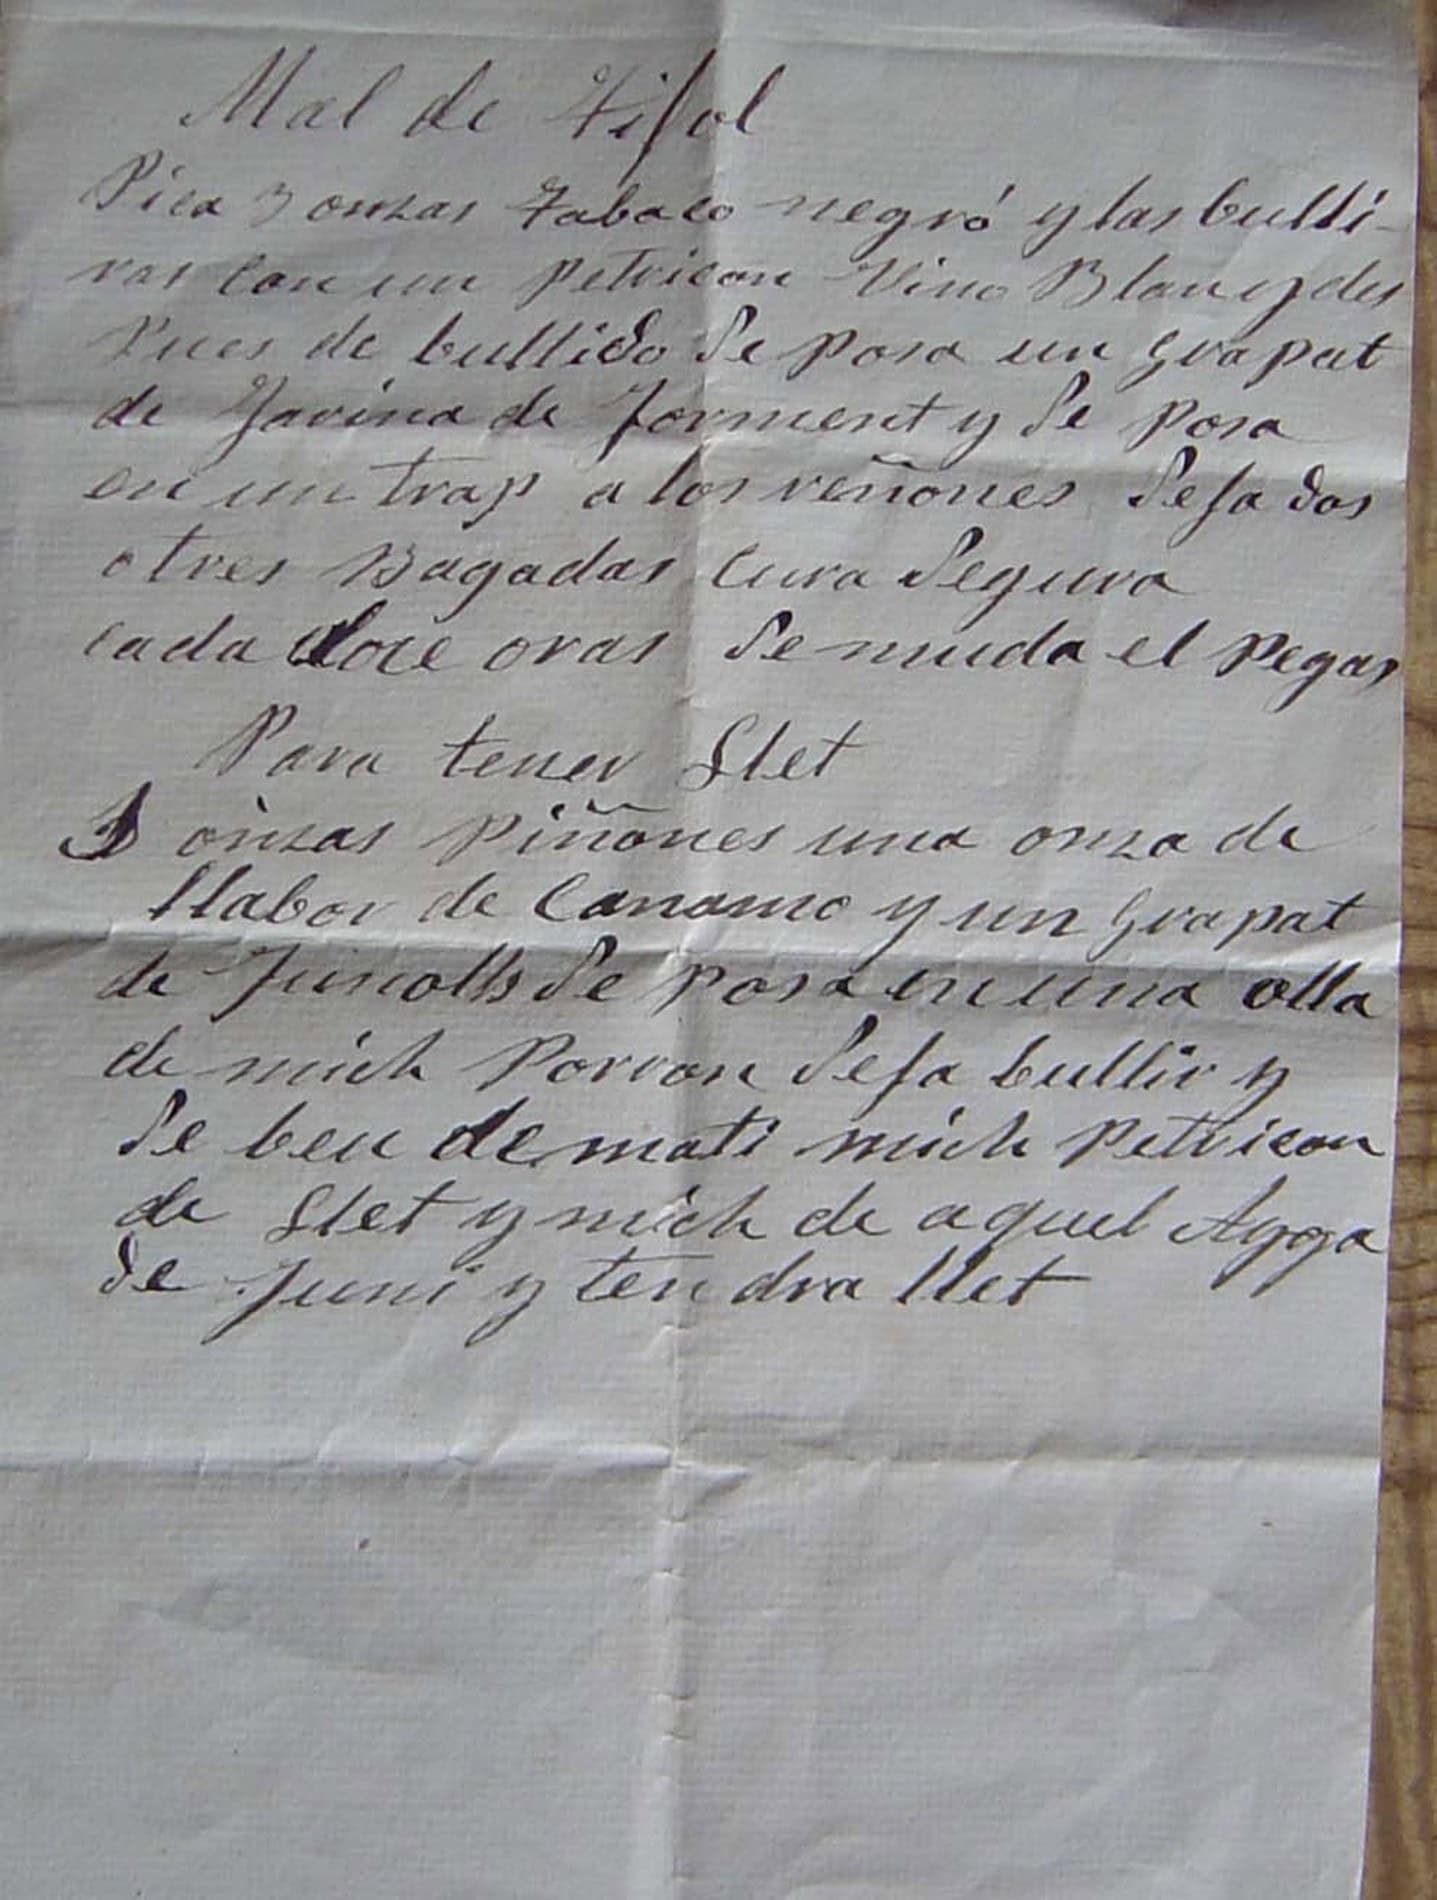 Mal de Tifol
Pica 3 onzas Tabaco negró y las bulli-
ras con un Petricon Vino Blan y des
Pues de bullido Se Posa un Grapat
de Farina de Forment y Se Posa
en un trap a los reñones Sefa dos
o tres Bagadas Cura Segura
cada doce oras Se muda el Pegas
Para tener Llet
3 onzas Piñones una onza de
llabor de Canamo y un Grapat
de Junolls Se Posa en una olla
de mich Porron Sefa bullir y
Se beu de mati mich Petricon
de Llet y mich de aquel Aygga
de Juni y tendra llet